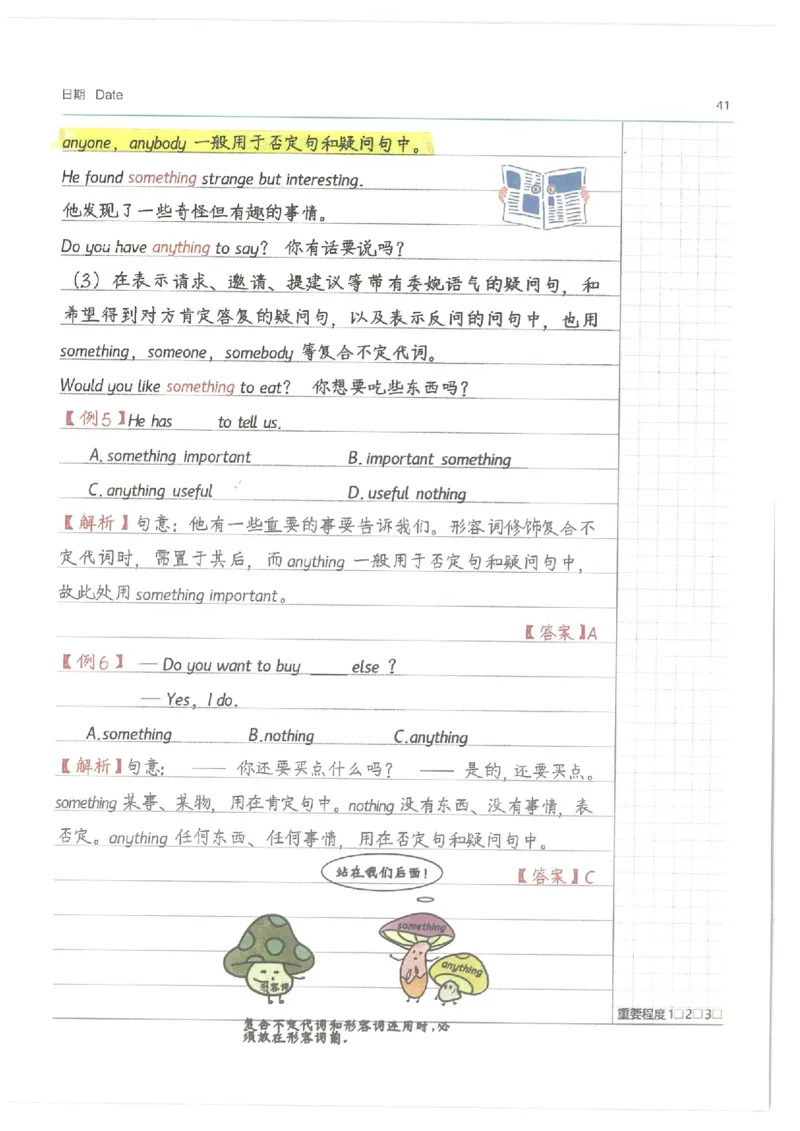 日期 Date
41
anyone，anybody 一般用于否定句和疑问句中。
He found something strange but interesting.
他发现了一些奇怪但有趣的事情。
Do you have anything to say? 你有话要说吗?
（3）在表示请求、邀请、提建议等带有委婉语气的疑问句，和
希望得到对方肯定答复的疑问句，以及表示反问的问句中，也用
something，someone，somebody 等复合不定代词。
Would you like something to eat? 你想要吃些东西吗?
【例5】He has      to tell us.
A. something important B. important something
C. anything useful D. useful nothing
【解析】句意：他有一些重要的事要告诉我们。形容词修饰复合不
定代词时，需置于其后，而 anything 一般用于否定句和疑问句中，
故此处用 something important。
【答案】A
【例6】 — Do you want to buy ____ else ?
— Yes，I do.
A.something B.nothing C.anything
【解析】句意： —— 你还要买点什么吗? —— 是的，还要买点。
something 某事、某物，用在肯定句中。nothing 没有东西、没有事情，表
否定。anything 任何东西、任何事情，用在否定句和疑问句中。
【答案】C
站在我们后面!
something
anything
形容词
重要程度 1□2□3□
复合不定代词和形容词连用时，必
须放在形容词前.